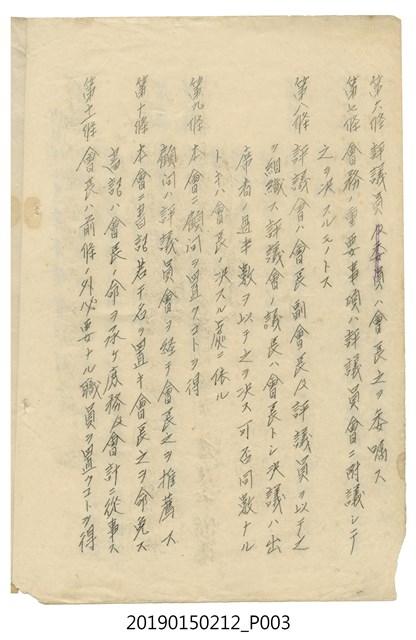 第六條 評議員及委員ハ會長之ヲ委嘱ス
第七條 會務ノ重要事項ハ評議員會ニ附議シテ
之ヲ決スルモノトス
第八條 評議會ハ會長副會長及評議員ヲ以テ之
ヲ組織ス評議會ノ議長ハ會長トシ決議ハ出
席者ノ過半數ヲ以テ之ヲ決ス可否同數ナル
トキハ會長ノ決スル處ニ依ル
第九條 本會ニ顧問ヲ置クコトヲ得
顧問ハ評議員會ヲ経テ會長之ヲ推薦ス
第十條 本會ニ書記若干名ヲ置キ會長之ヲ命免ス
書記ハ會長ノ命ヲ承ケ庶務及會計ニ從事ス
第十一條 會長ハ前條ノ外必要ナル職員ヲ置クコトヲ得
20190150212_P003